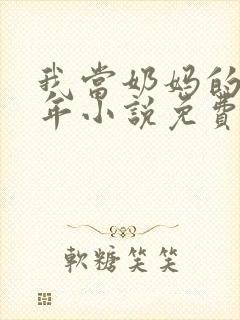 我當奶媽的
年小說免費
軟糖笑笑